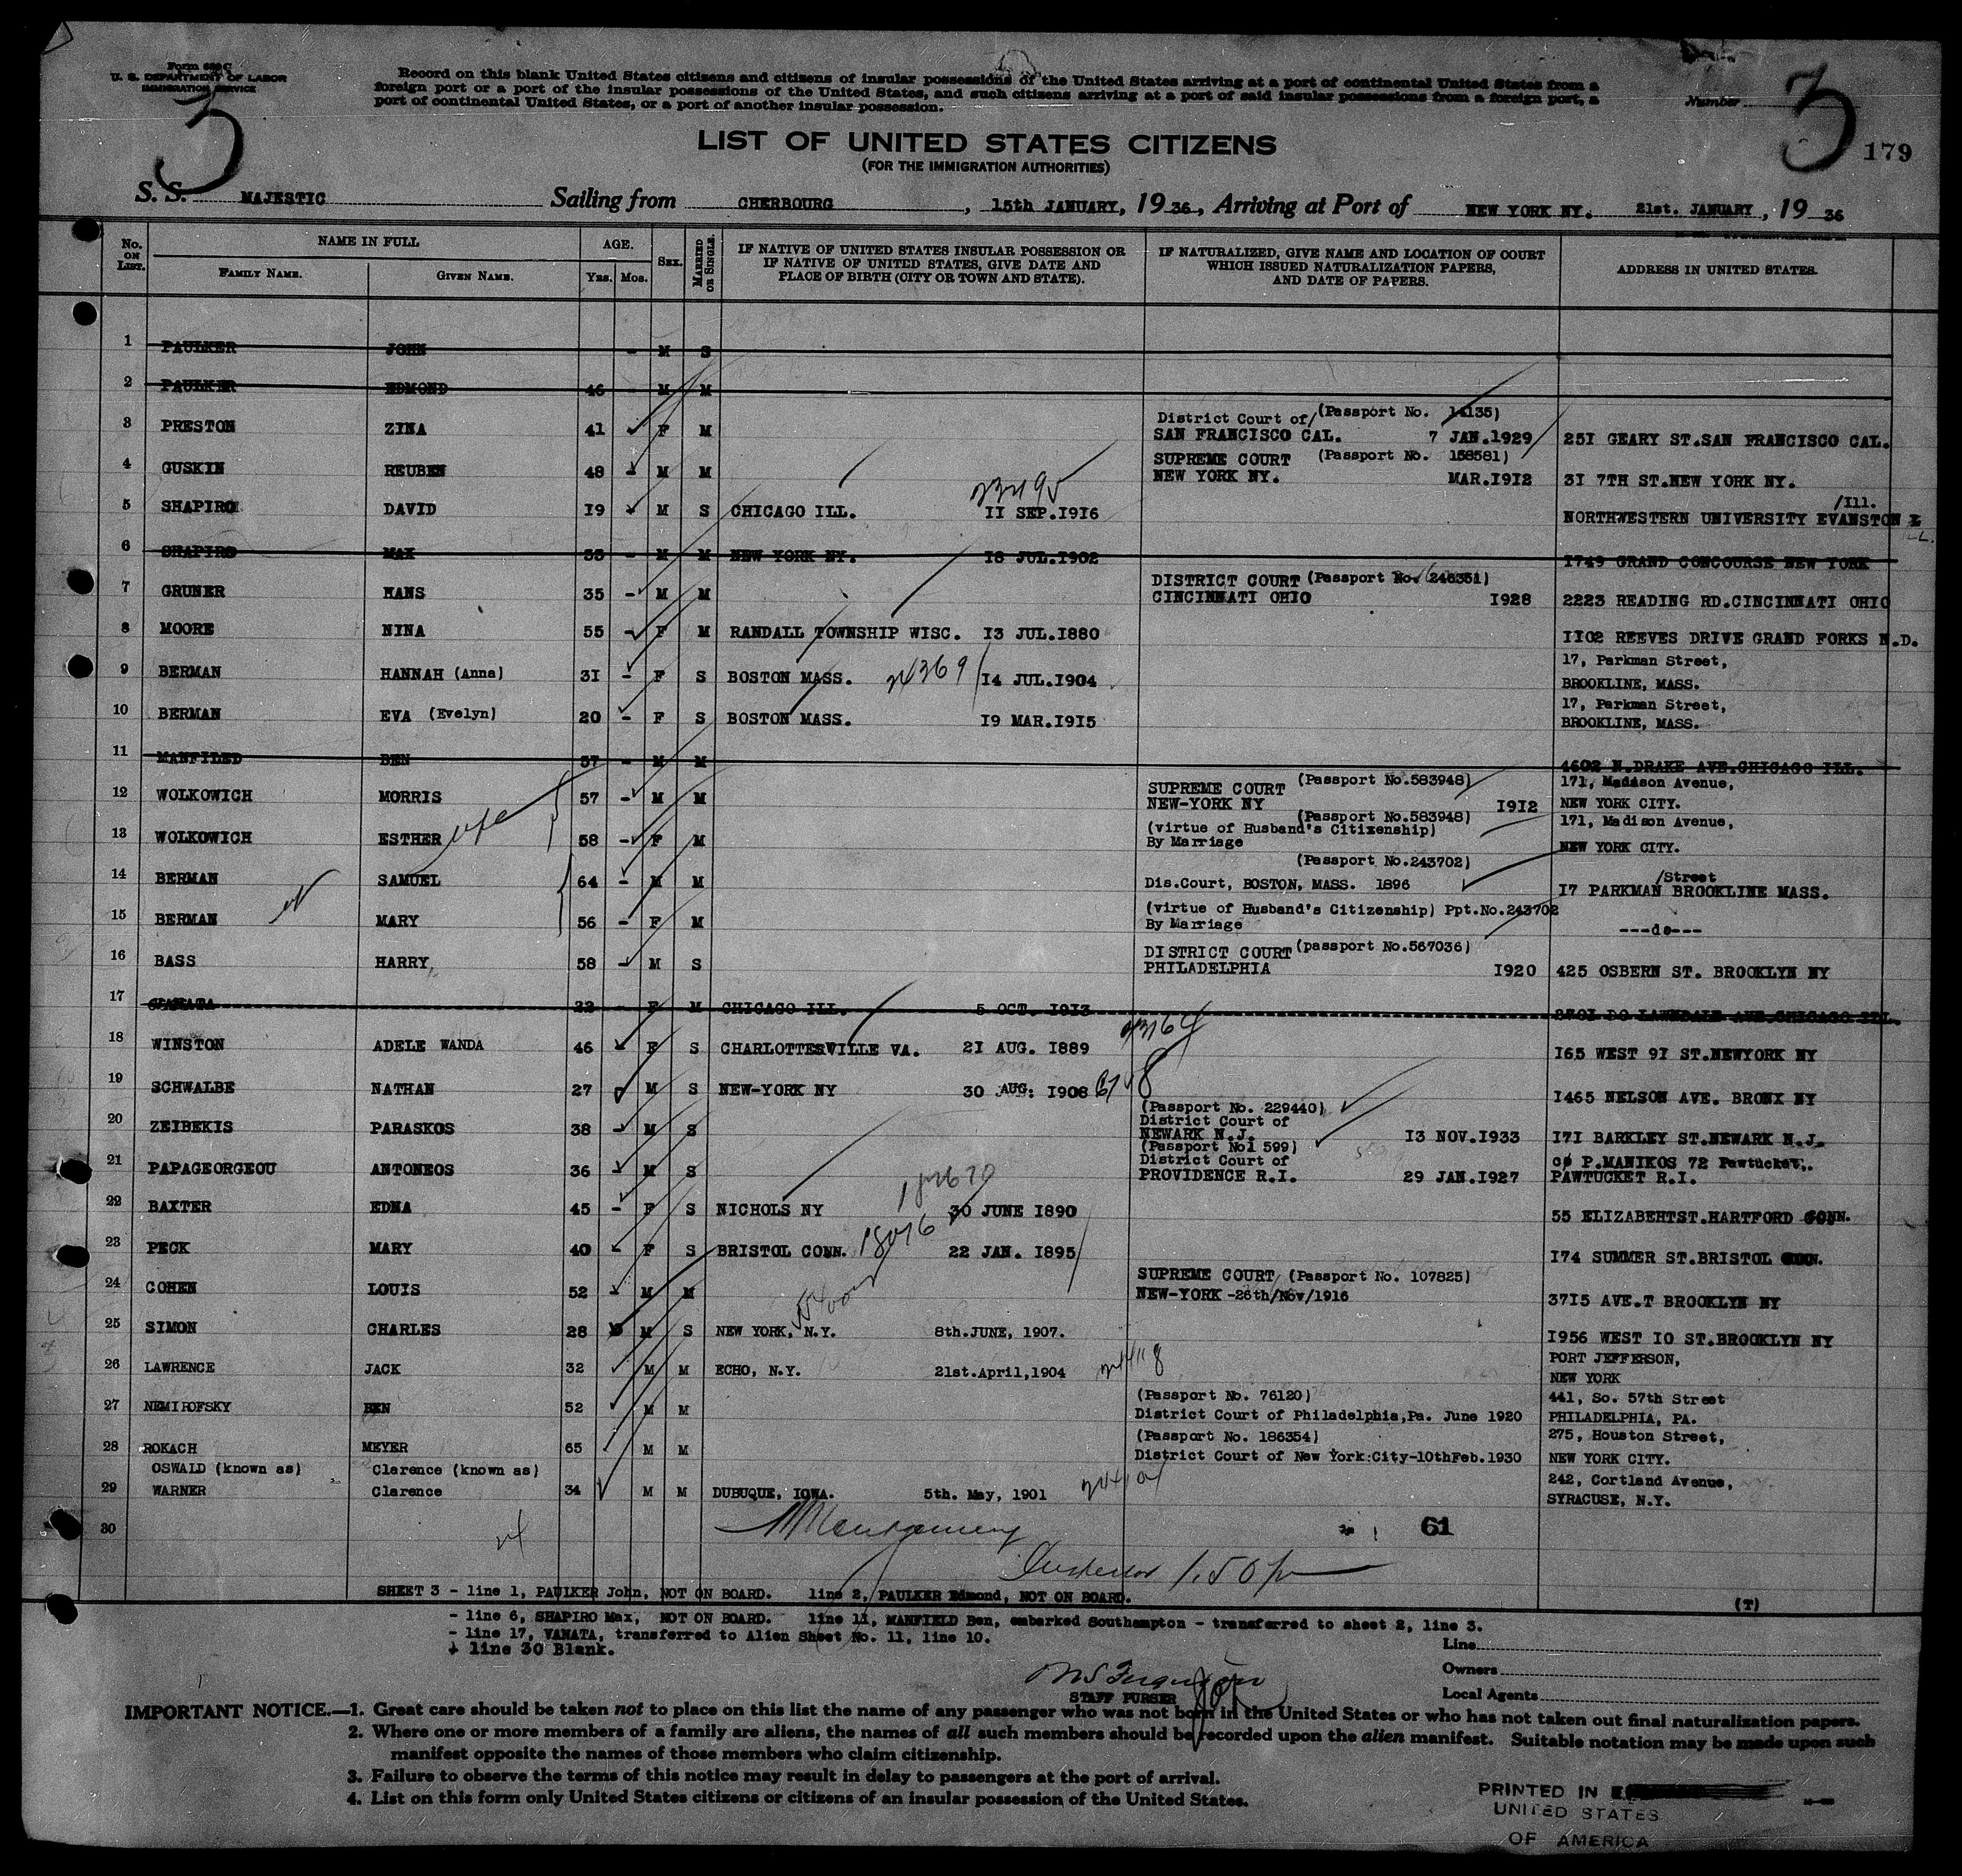 Form 630 C
U. S. DEPARTMENT OF LABOR
IMMIGRATION SERVICE
3
Record on this blank United States citizens and citizens of insular possessions of the United States arriving at a port of continental United States from a
foreign port or a port of the insular possessions of the United States, and such citizens arriving at a port of said insular possessions from a foreign port, a
port of continental United States, or a port of another insular possession.
Number 3
179
LIST OF UNITED STATES CITIZENS
(FOR THE IMMIGRATION AUTHORITIES)
S. S. MAJESTIC Sailing from CHERBOURG , 15th JANUARY, 19 36, Arriving at Port of NEW YORK NY. 21st. JANUARY , 19 36
No. ON LIST. NAME IN FULL FAMILY NAME. GIVEN NAME. AGE. Yrs. Mos. SEX. MARRIED OR SINGLE. IF NATIVE OF UNITED STATES INSULAR POSSESSION OR IF NATIVE OF UNITED STATES, GIVE DATE AND PLACE OF BIRTH (CITY OR TOWN AND STATE). IF NATURALIZED, GIVE NAME AND LOCATION OF COURT WHICH ISSUED NATURALIZATION PAPERS, AND DATE OF PAPERS. ADDRESS IN UNITED STATES.
1 PAULKER JOHN - M S
2 PAULKER EDMOND 46 - M M
3 PRESTON ZINA 41 - F M District Court of/(Passport No. 14135) SAN FRANCISCO CAL. 7 JAN.1929 251 GEARY ST.SAN FRANCISCO CAL.
4 GUSKIN REUBEN 48 - M M SUPREME COURT (Passport No. 158581) NEW YORK NY. MAR.1912 31 7TH ST.NEW YORK NY.
5 SHAPIRO DAVID 19 - M S CHICAGO ILL. 11 SEP.1916 /Ill. NORTHWESTERN UNIVERSITY EVANSTON
6 SHAPIRO MAX 55 - M M NEW YORK NY. 18 JUL.1902 1749 GRAND CONCOURSE NEW YORK
7 GRUNER HANS 35 - M M DISTRICT COURT (Passport No. 246351) CINCINNATI OHIO 1928 2223 READING RD.CINCINNATI OHIO
8 MOORE NINA 55 - F M RANDALL TOWNSHIP WISC. 13 JUL.1880 1102 REEVES DRIVE GRAND FORKS N.D.
9 BERMAN HANNAH (Anna) 31 - F S BOSTON MASS. 24369 14 JUL.1904 17, Parkman Street, BROOKLINE, MASS.
10 BERMAN EVA (Evelyn) 20 - F S BOSTON MASS. 19 MAR.1915 17, Parkman Street, BROOKLINE, MASS.
11 MANFILED BEN 57 - M M 4602 N.DRAKE AVE.CHICAGO ILL.
12 WOLKOWICH MORRIS 57 - M M SUPREME COURT (Passport No.583948) NEW-YORK NY 1912 171, Madison Avenue, NEW YORK CITY.
13 WOLKOWICH ESTHER 58 - F M (Passport No.583948) (virtue of Husband's Citizenship) By Marriage 171, Madison Avenue, NEW YORK CITY.
14 BERMAN SAMUEL 64 - M M (Passport No.243702) Dis.Court, BOSTON, MASS. 1896 /Street 17 PARKMAN BROOKLINE MASS.
15 BERMAN MARY 56 - F M (virtue of Husband's Citizenship) Ppt.No.243702 By Marriage ---do---
16 BASS HARRY 58 - M S DISTRICT COURT (passport No.567036) PHILADELPHIA 1920 425 OSBERN ST. BROOKLYN NY
17 22 - F M CHICAGO ILL. 5 OCT. 1913
18 WINSTON ADELE WANDA 46 - F S CHARLOTTESVILLE VA. 21 AUG. 1889 165 WEST 91 ST.NEWYORK NY
19 SCHWALBE NATHAN 27 M S NEW-YORK NY 30 AUG: 1908 1465 NELSON AVE. BRONX NY
20 ZEIBEKIS PARASKOS 38 - M S (Passport No. 229440) District Court of NEWARK N.J. 13 NOV.1933 171 BARKLEY ST.NEWARK N.J.
21 PAPAGEORGEOU ANTONEOS 36 - M S (Passport No1 599) District Court of PROVIDENCE R.I. 29 JAN.1927 P.MANIKOS 72 Pawtucket,. PAWTUCKET R.I.
22 BAXTER EDNA 45 - F S NICHOLS NY 30 JUNE 1890 55 ELIZABEHTST.HARTFORD CONN.
23 PECK MARY 40 - F S BRISTOL CONN. 18076 22 JAN. 1895 174 SUMMER ST.BRISTOL CONN.
24 COHEN LOUIS 52 M M SUPREME COURT (Passport No. 107825) NEW-YORK -26th/Nov/1916 3715 AVE.T BROOKLYN NY
25 SIMON CHARLES 28 M S NEW YORK, N.Y. 8th.JUNE, 1907. 1956 WEST 10 ST.BROOKLYN NY
26 LAWRENCE JACK 32 M M ECHO, N.Y. 21st.April,1904 PORT JEFFERSON, NEW YORK
27 NEMIROFSKY BEN 52 M M (Passport No. 76120) District Court of Philadelphia,Pa. June 1920 441, So. 57th Street PHILADELPHIA, PA.
28 ROKACH MEYER 65 M M (Passport No. 186354) District Court of New York:City-10thFeb.1930 275, Houston Street, NEW YORK CITY.
OSWALD (known as) Clarence (known as)
29 WARNER Clarence 34 M M DUBUQUE, IOWA. 5th. May, 1901 242, Cortland Avenue, SYRACUSE, N.Y.
30 61
Montgomery
Inspector 1.50 pm
SHEET 3 - line 1, PAULKER John, NOT ON BOARD. line 2, PAULKER Edmond, NOT ON BOARD.
- line 6, SHAPIRO Max, NOT ON BOARD. line 11, MANFIELD Ben, embarked Southampton - transferred to sheet 2, line 3.
- line 17, VANATA, transferred to Alien Sheet No. 11, line 10.
line 30 Blank.
(T)
Line
Owners
Local Agents
STAFF PURSER
IMPORTANT NOTICE.—1. Great care should be taken not to place on this list the name of any passenger who was not born in the United States or who has not taken out final naturalization papers.
2. Where one or more members of a family are aliens, the names of all such members should be recorded upon the alien manifest. Suitable notation may be made upon such
manifest opposite the names of those members who claim citizenship.
3. Failure to observe the terms of this notice may result in delay to passengers at the port of arrival.
4. List on this form only United States citizens or citizens of an insular possession of the United States.
PRINTED IN
UNITED STATES
OF AMERICA